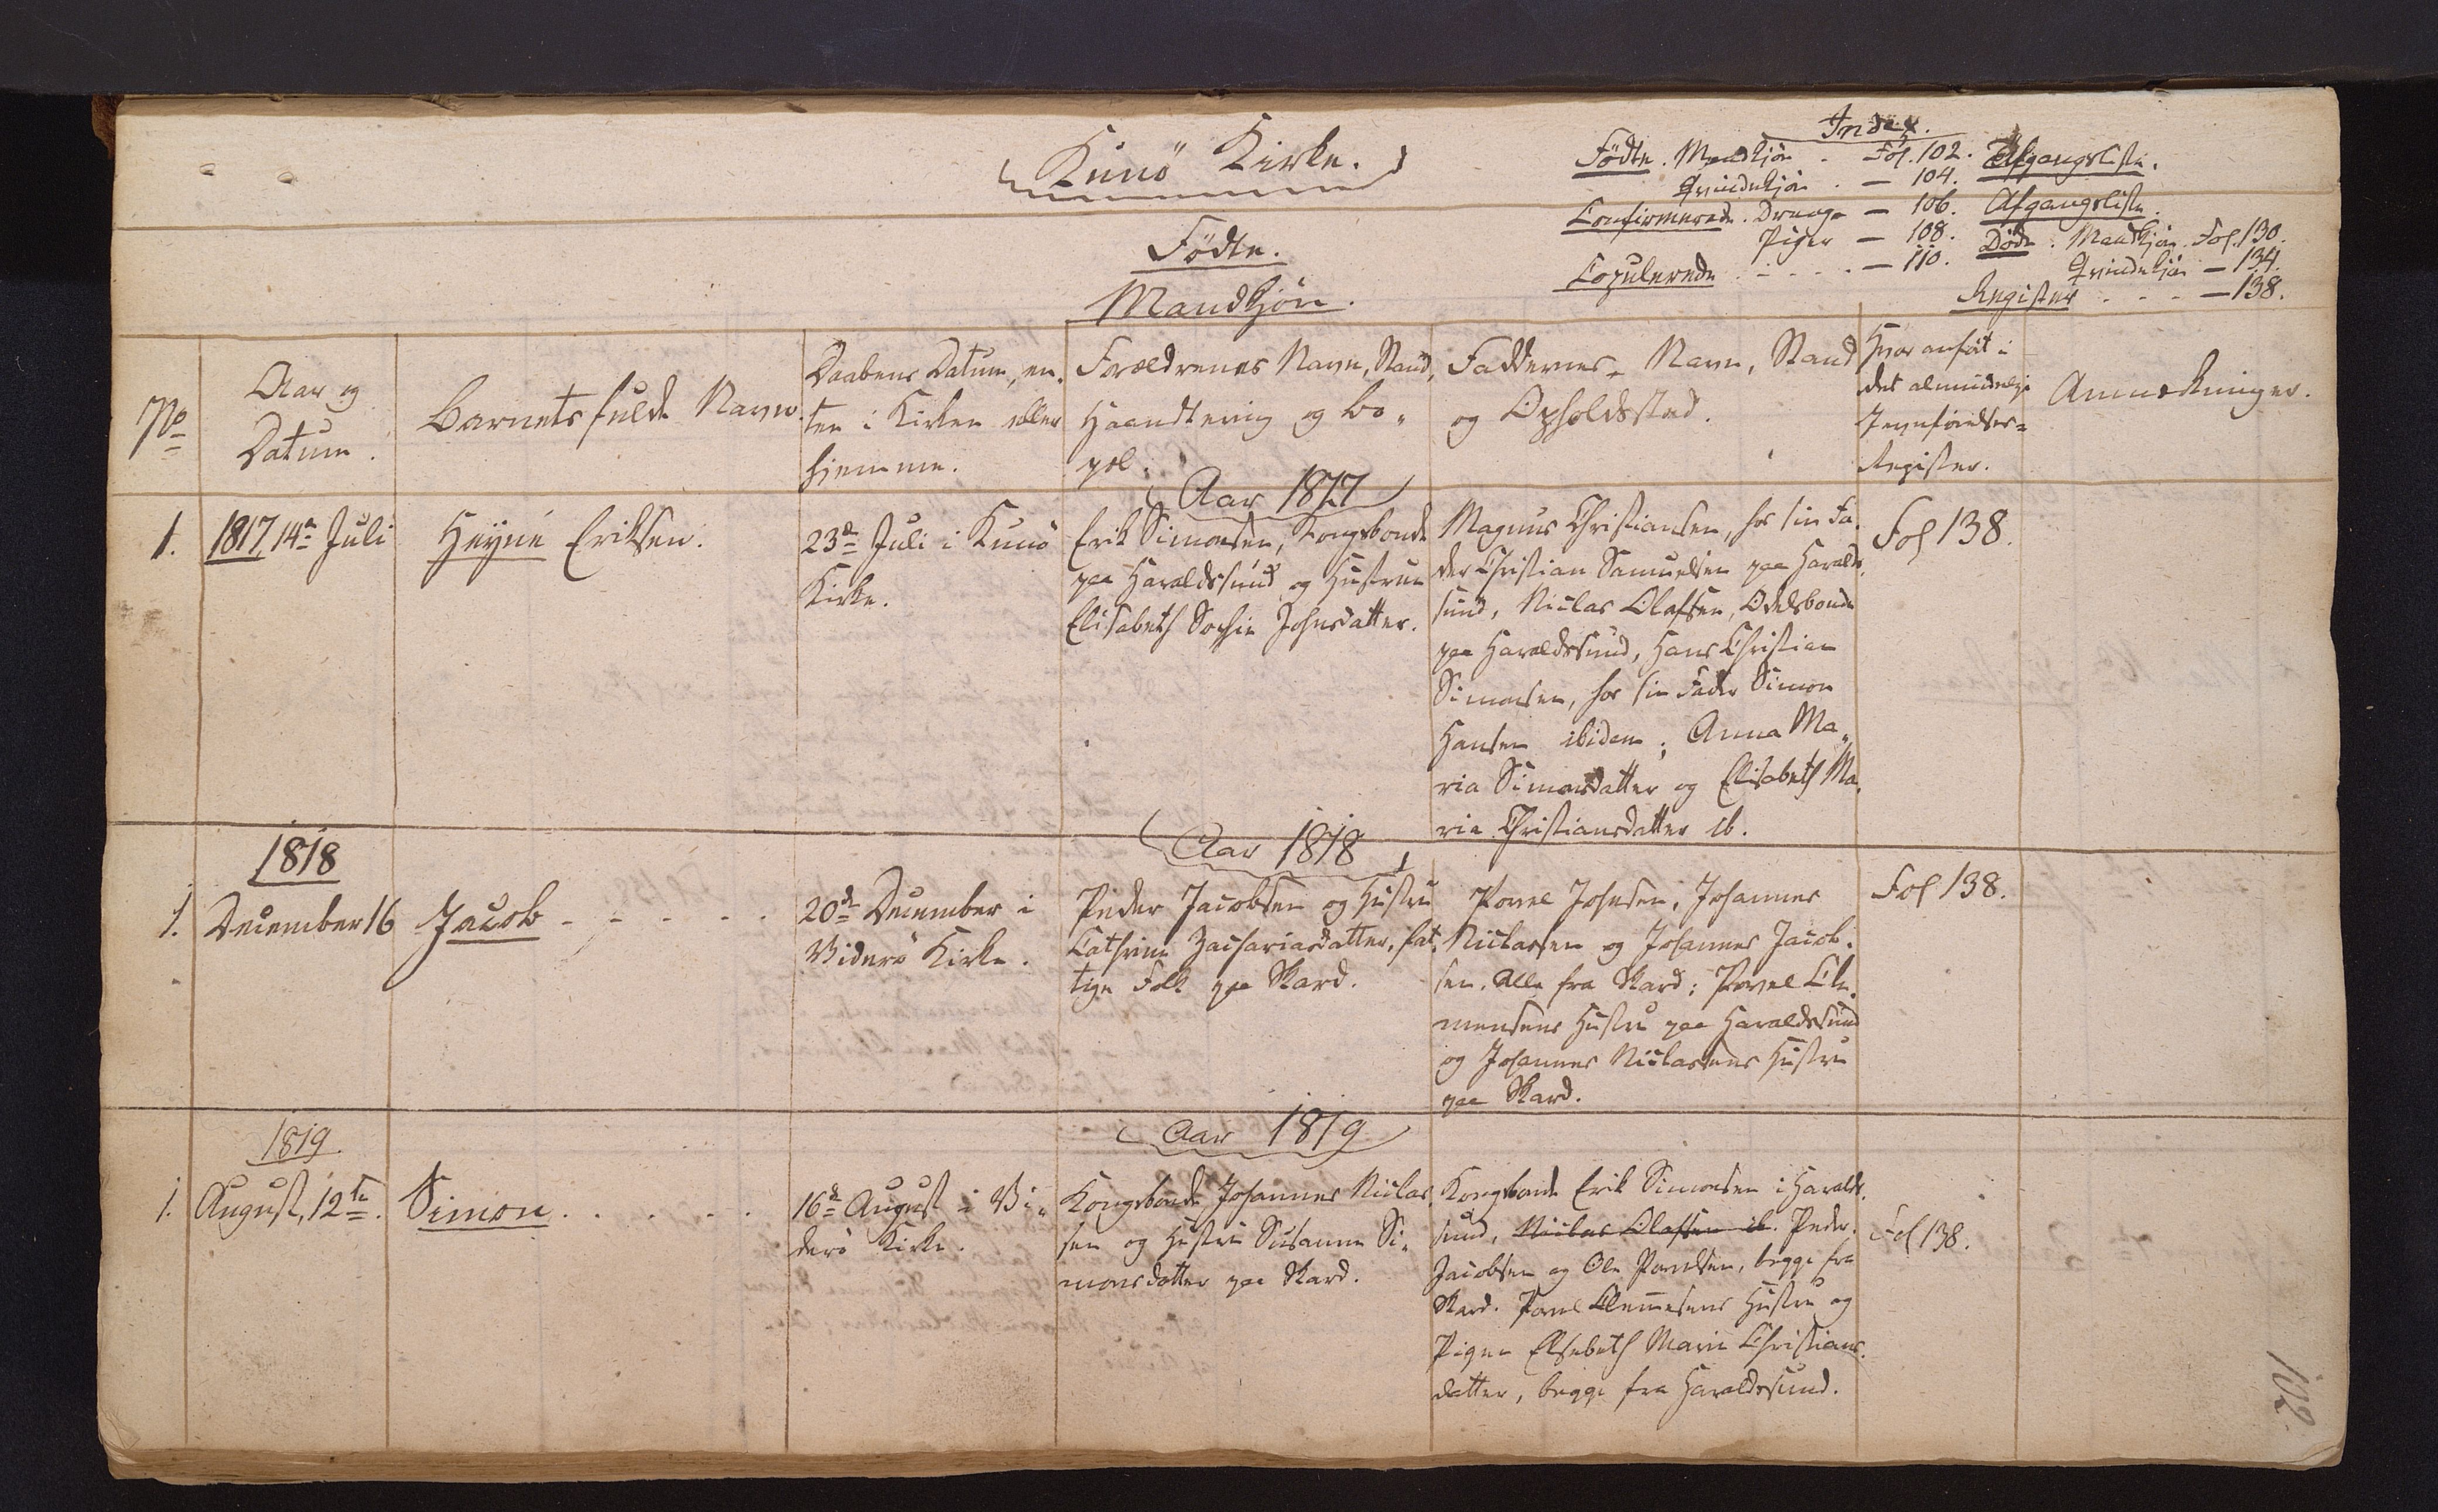 Kunö Kirke.
Index.
Födte. Mandkjön . Fol. 102.
Qvindekjön . — 104.
Confirmerede. Drenge — 106.
Piger — 108.
Copulerede . . . . — 110.
Afgangsliste.
Afgangsliste.
Döde. Mandkjön. Fol. 130.
Qvindekjön — 134.
Register . . . — 138.
Födte.
Mandkjön.
No
Aar og
Datum.
Barnets fulde Navn.
Daabens Datum, en-
ten i Kirken eller
hjemme.
Forældrenes Navn, Stand,
Haandtering og Bo-
pæl.
Faddernes Navn, Stand
og Opholdssted.
Hvor anfört i
det almindelige
Jevnförelses-
Register.
Anmærkninger.
Aar 1817
1.
1817 14de Juli
Heyne Eriksen.
23de Juli i Kunö
Kirke.
Erik Simonsen, Kongsbonde
paa Haraldssund og Hustrue
Elisabeth Sophie Johnsdatter.
Magnus Christiansen, hos sin Fa-
der Christian Samuelsen paa Haralds-
sund, Niclas Olafsen, Odelsbonde
paa Haraldssund, Hans Christian
Simonsen, hos sin Fader Simon
Hansen ibidem; Anna Ma-
ria Simonsdatter og Elisabeth Ma-
ria Christiansdatter ib.
Fol 138.
Aar 1818
1818
1.
December 16
Jacob - - - - -
20de December i
Viderö Kirke.
Peder Jacobsen og Hustru
Cathrine Zachariasdatter, fat-
tige Folk paa Skard.
Povel Johnsen, Johannes
Niclassen og Johannes Jacob-
sen, alle fra Skard; Povel Cle-
mensens Hustru paa Haraldssund
og Johannes Niclassens Hustru
paa Skard.
Fol 138.
Aar 1819
1819.
1.
August, 12te.
Simon . . . . .
16de August i Vi-
derö Kirke.
Kongsbonde Johannes Niclas-
sen og Hustru Susanne Si-
monsdatter paa Skard.
Kongsbonde Erik Simonsen i Haralds-
sund, Niclas Olafsen ib. Peder
Jacobsen og Ole Povelsen, begge fra
Skard. Povel Clemmesens Hustru og
Pigen Elsebeth Marie Christians-
datter, begge fra Haraldssund.
Fol 138.
102.